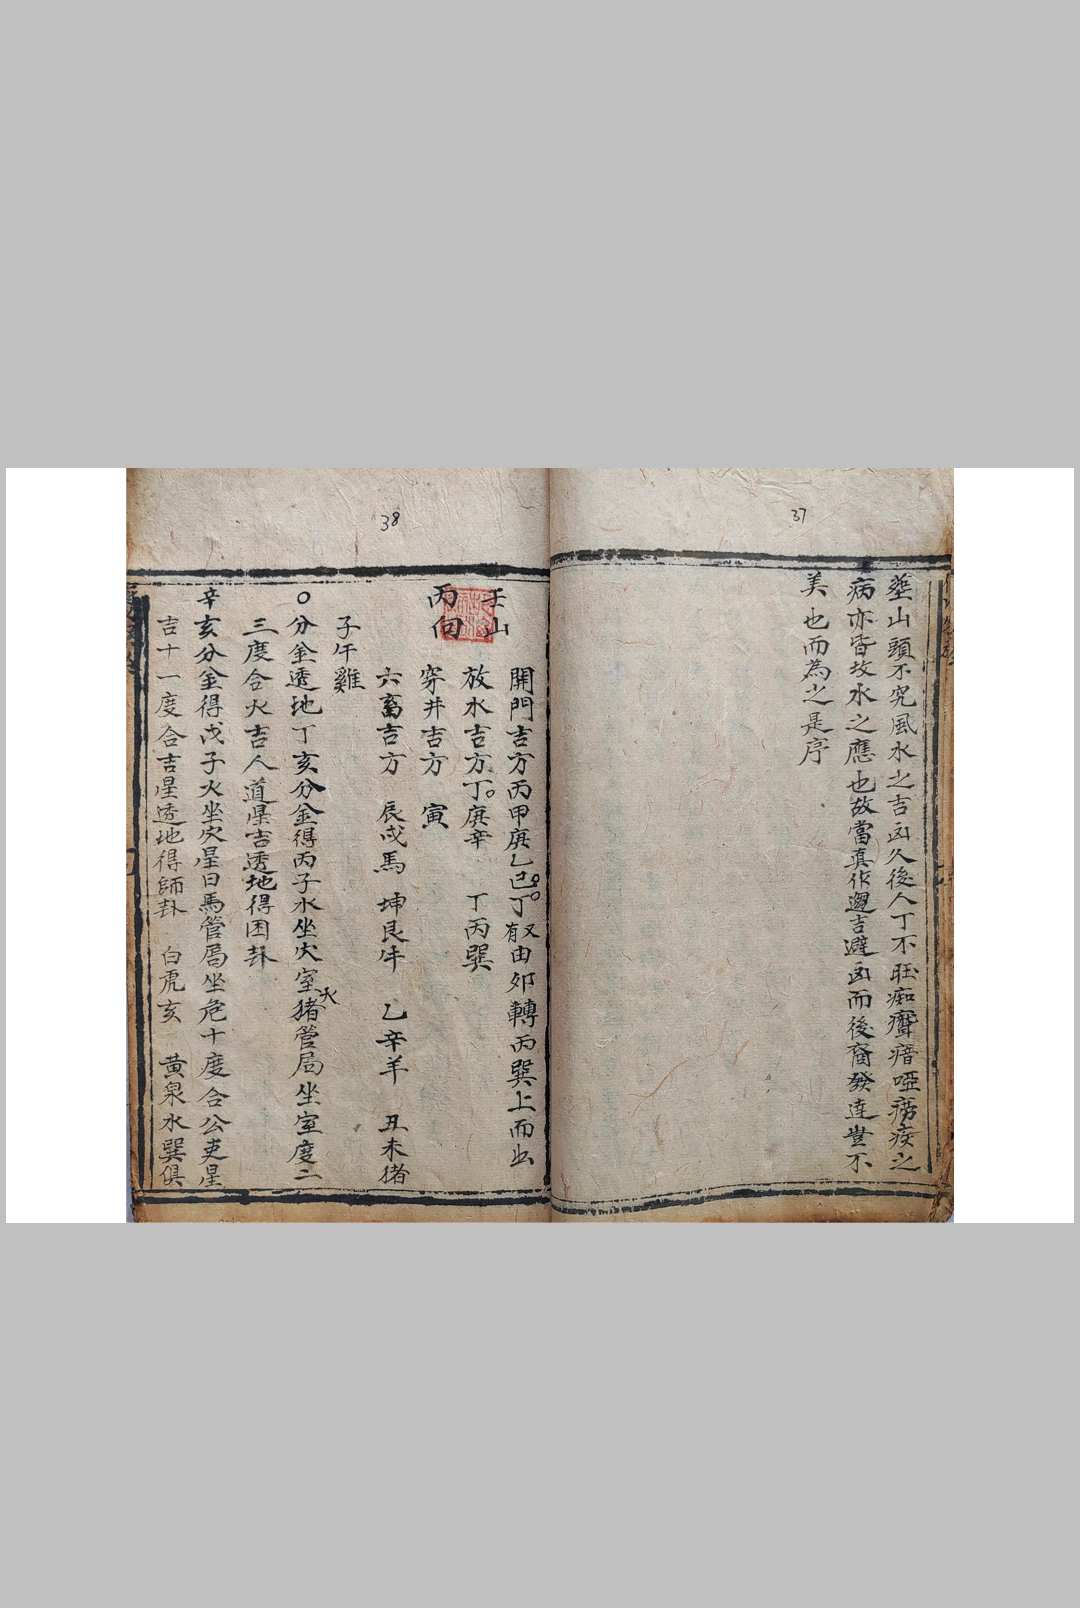 37
塟山頭不究風水之吉凶久後人丁不旺痴聾瘖啞痨疾之
病亦皆坟水之應也故當真作趨吉避凶而後裔發達豈不
美也而為之是序
38
壬山
丙向
開門吉方丙甲庚乙巳丁又有由卯轉丙巽上而出
放水吉方丁庚辛 丁丙巽
穿井吉方 寅
六畜吉方 辰戌馬 坤艮牛 乙辛羊 丑未猪
子午雞
○分金透地丁亥分金得丙子水坐穴室火猪管局坐室度二
三度合火吉人道星吉透地得困卦
辛亥分金得戊子火坐穴星日馬管局坐危十度合公吏星
吉十一度合吉星透地得師卦 白虎亥 黄泉水巽俱